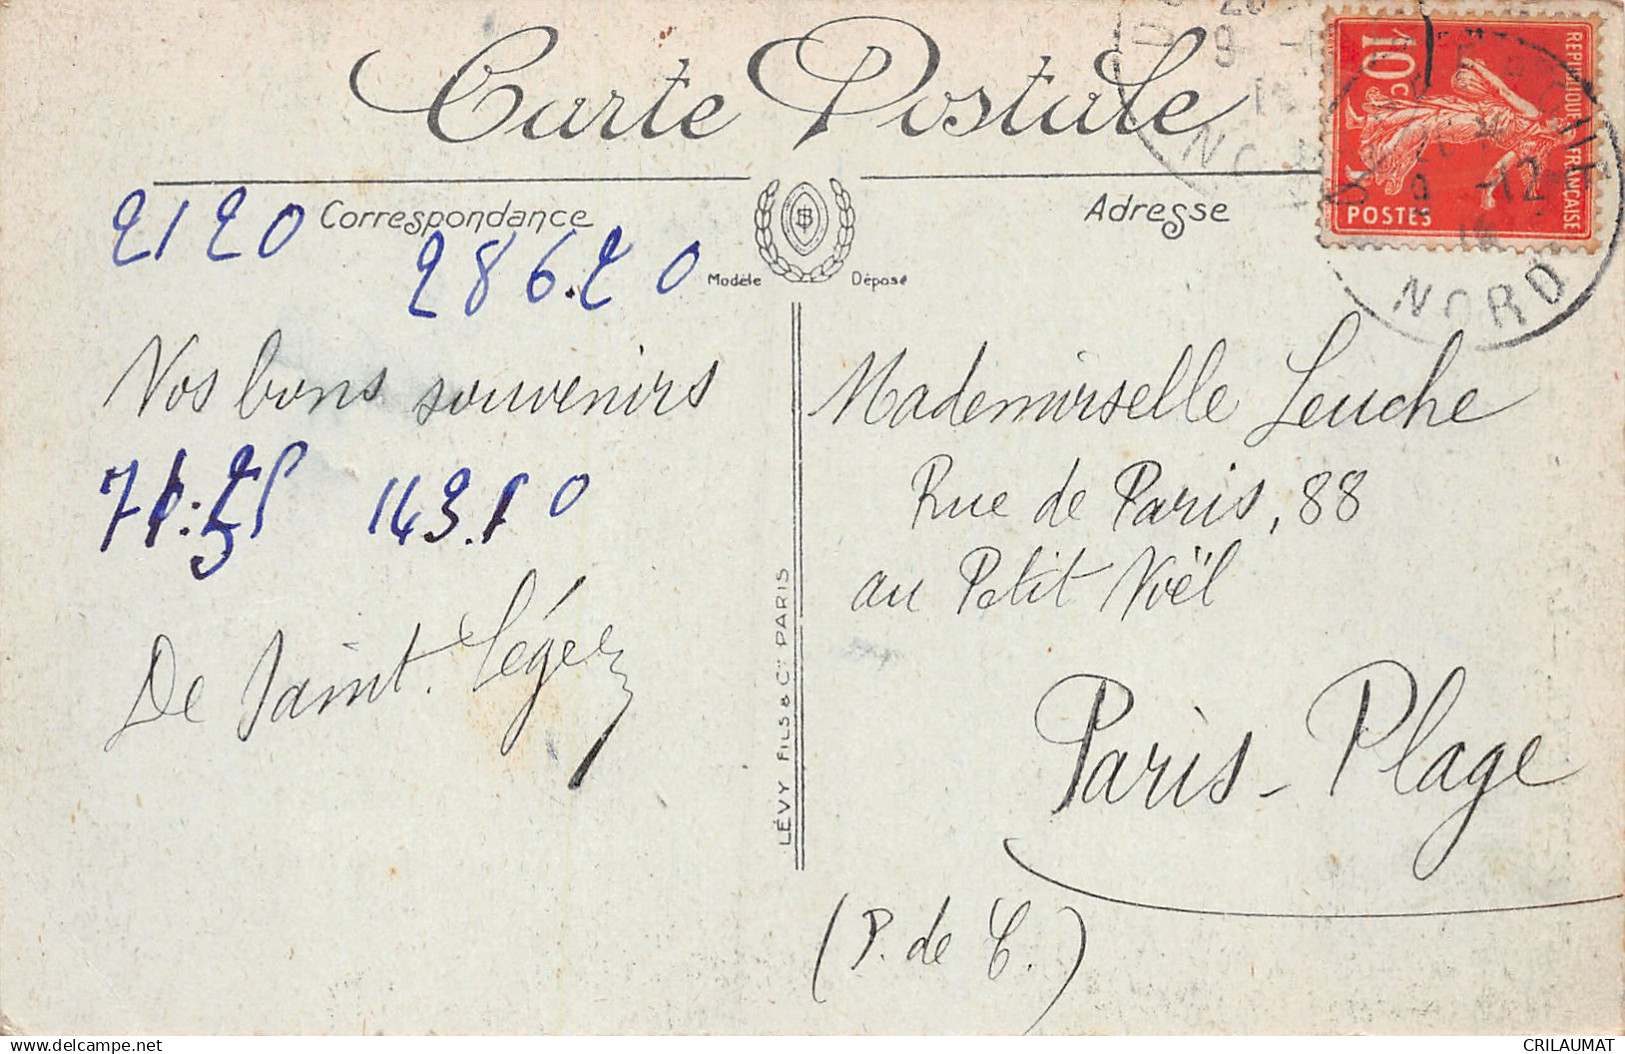 Carte Postale
Correspondance
Adresse
Modèle Déposé
RÉPUBLIQUE FRANÇAISE
10c
POSTES
9 -12
NORD
2120
286.20
Vos bons souvenirs
143.10
De Saint. Léger
LÉVY FILS & Cie PARIS
Mademoiselle Leuche
Rue de Paris, 88
au Petit Noël
Paris-Plage
(P. de C.)
www.delcampe.net
CRILAUMAT